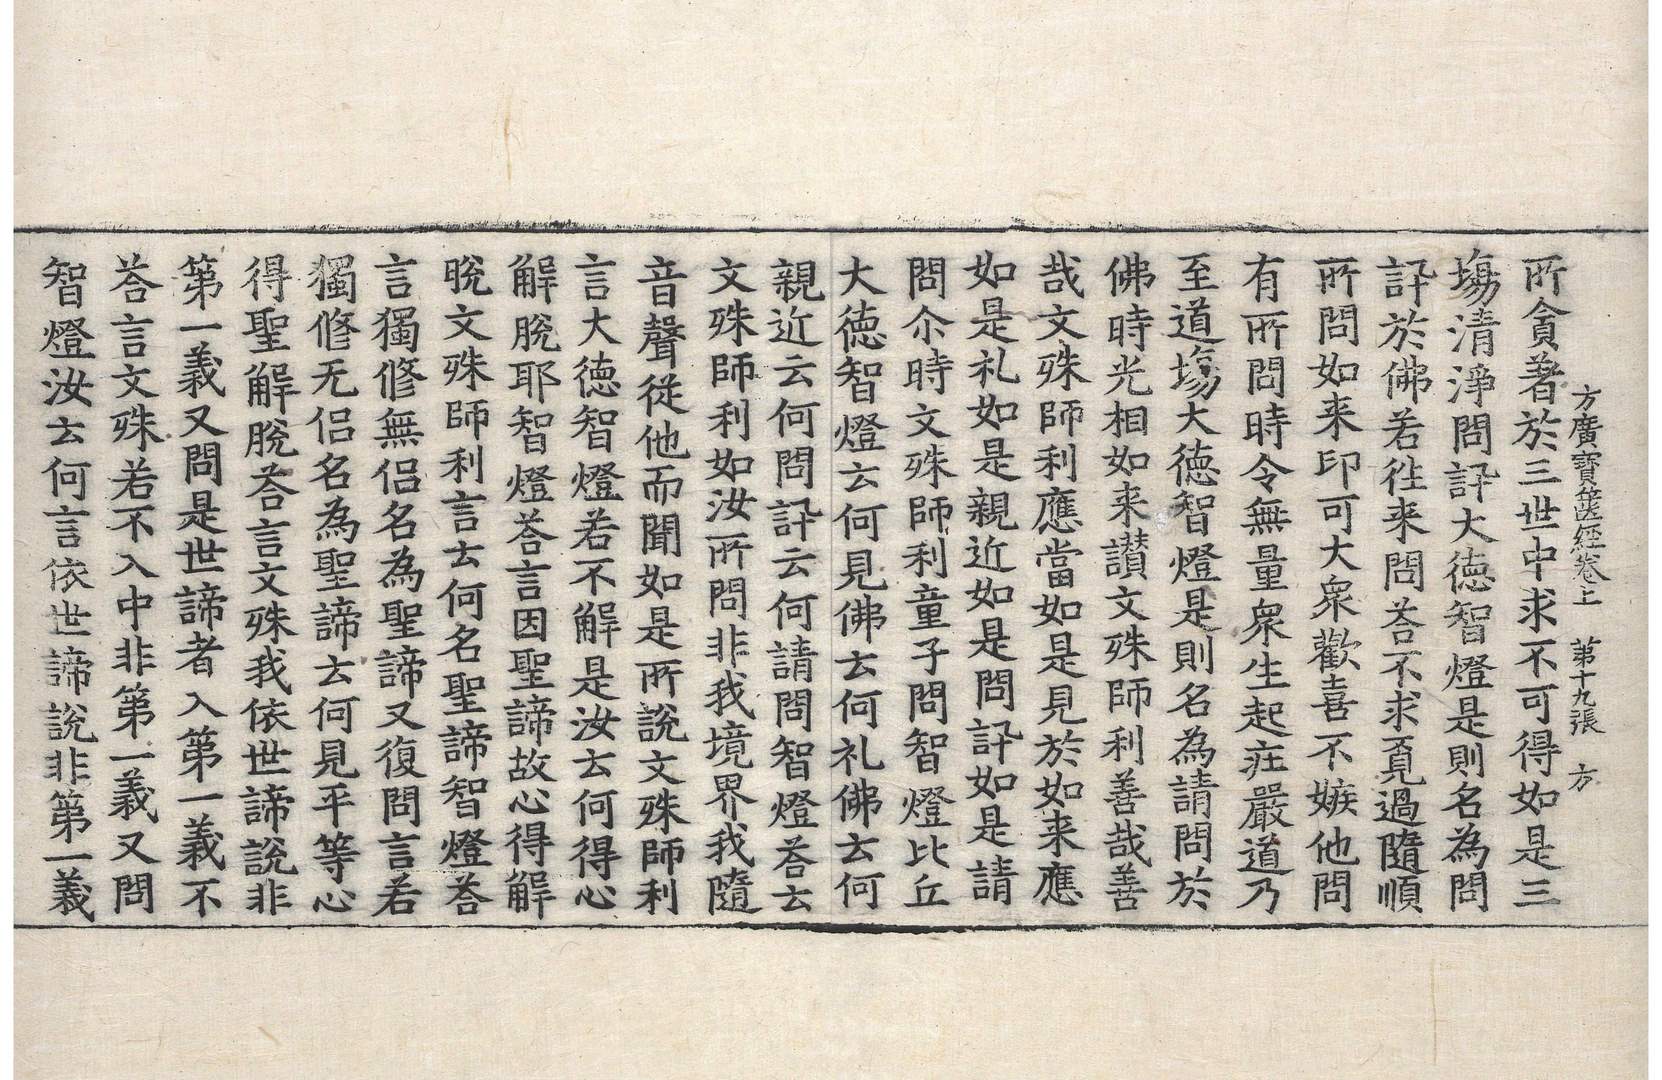 方廣寶篋經卷上　第十九張　方
所貪著於三世中求不可得如是三
塲清淨問訊大德智燈是則名為問
訊於佛若往来問荅不求覓過隨順
所問如来印可大衆歡喜不嫉他問
有所問時令無量衆生起疘嚴道乃
至道塲大德智燈是則名為請問於
佛時光相如来讃文殊師利善哉善
哉文殊師利應當如是見於如来應
如是礼如是親近如是問訊如是請
問尒時文殊師利童子問智燈比丘
大德智燈云何見佛云何礼佛云何
親近云何問訊云何請問智燈荅云
文殊師利如汝所問非我境界我隨
音聲從他而聞如是所說文殊師利
言大德智燈若不解是汝云何得心
解脫耶智燈荅言因聖諦故心得解
脫文殊師利言云何名聖諦智燈荅
言獨修無侣名為聖諦又復問言若
獨修无侣名為聖諦云何見平等心
得聖解脫荅言文殊我依世諦說非
第一義又問是世諦者入第一義不
荅言文殊若不入中非第一義又問
智燈汝云何言依世諦說非第一義